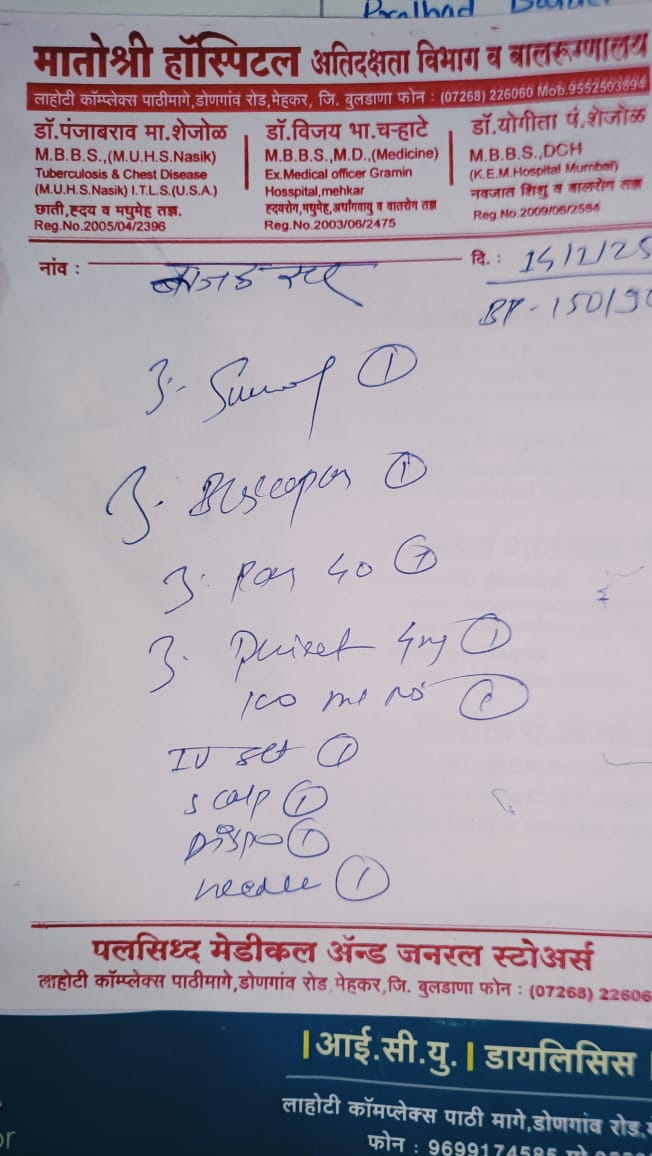 Pralhad
मातोश्री हॉस्पिटल अतिदक्षता विभाग व बालरूग्णालय
लाहोटी कॉम्प्लेक्स पाठीमागे,डोणगांव रोड,मेहकर, जि. बुलडाणा फोन : (07268) 226060 Mob.9552503894
डॉ.पंजाबराव मा.शेजोळ
M.B.B.S.,(M.U.H.S.Nasik)
Tuberculosis & Chest Disease
(M.U.H.S.Nasik) I.T.L.S.(U.S.A.)
छाती,ह्रदय व मधुमेह तज्ञ.
Reg.No.2005/04/2396
डॉ.विजय भा.चऱ्हाटे
M.B.B.S.,M.D.,(Medicine)
Ex.Medical officer Gramin
Hosspital,mehkar
ह्दयरोग,मधुमेह,अर्धांगवायु व वातरोग तज्ञ
Reg.No.2003/06/2475
डॉ.योगीता पं.शेजोळ
M.B.B.S.,DCH
(K.E.M.Hospital Mumbai)
नवजात शिशु व बालरोग तज्ञ
Reg.No.2009/06/2584
नांव :
दि. : 15/1/25
BP - 150/90
①
Buscopan ①
Pan 40 ①
①
100 ml NS ①
IV set ①
Scalp ①
Dispo ①
needle ①
पलसिध्द मेडीकल ॲन्ड जनरल स्टोअर्स
लाहोटी कॉम्प्लेक्स पाठीमागे,डोणगांव रोड,मेहकर,जि. बुलडाणा फोन : (07268) 22606
|आई.सी.यु.| डायलिसिस
लाहोटी कॉमप्लेक्स पाठी मागे,डोणगांव रोड,
फोन : 9699174585
or